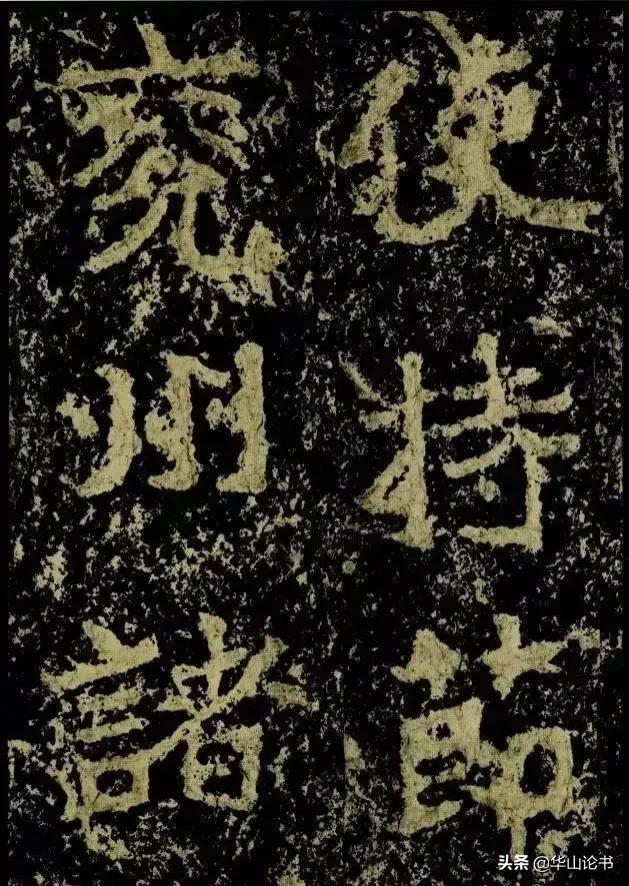 使持節
兗州諸
头条 @华山论书